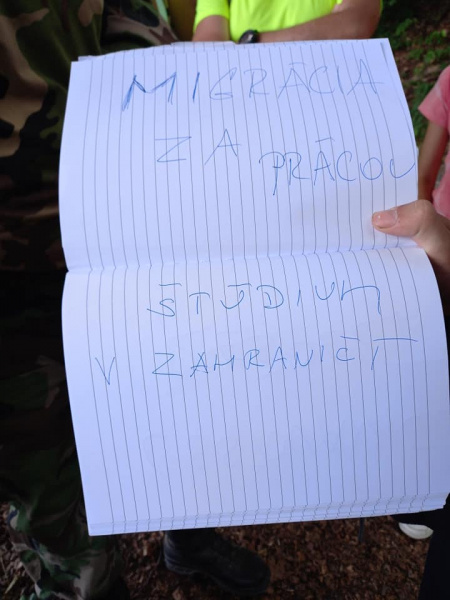 MIGRÁCIA
ZA PRÁCOU
ŠTÚDIUM
V ZAHRANIČÍ